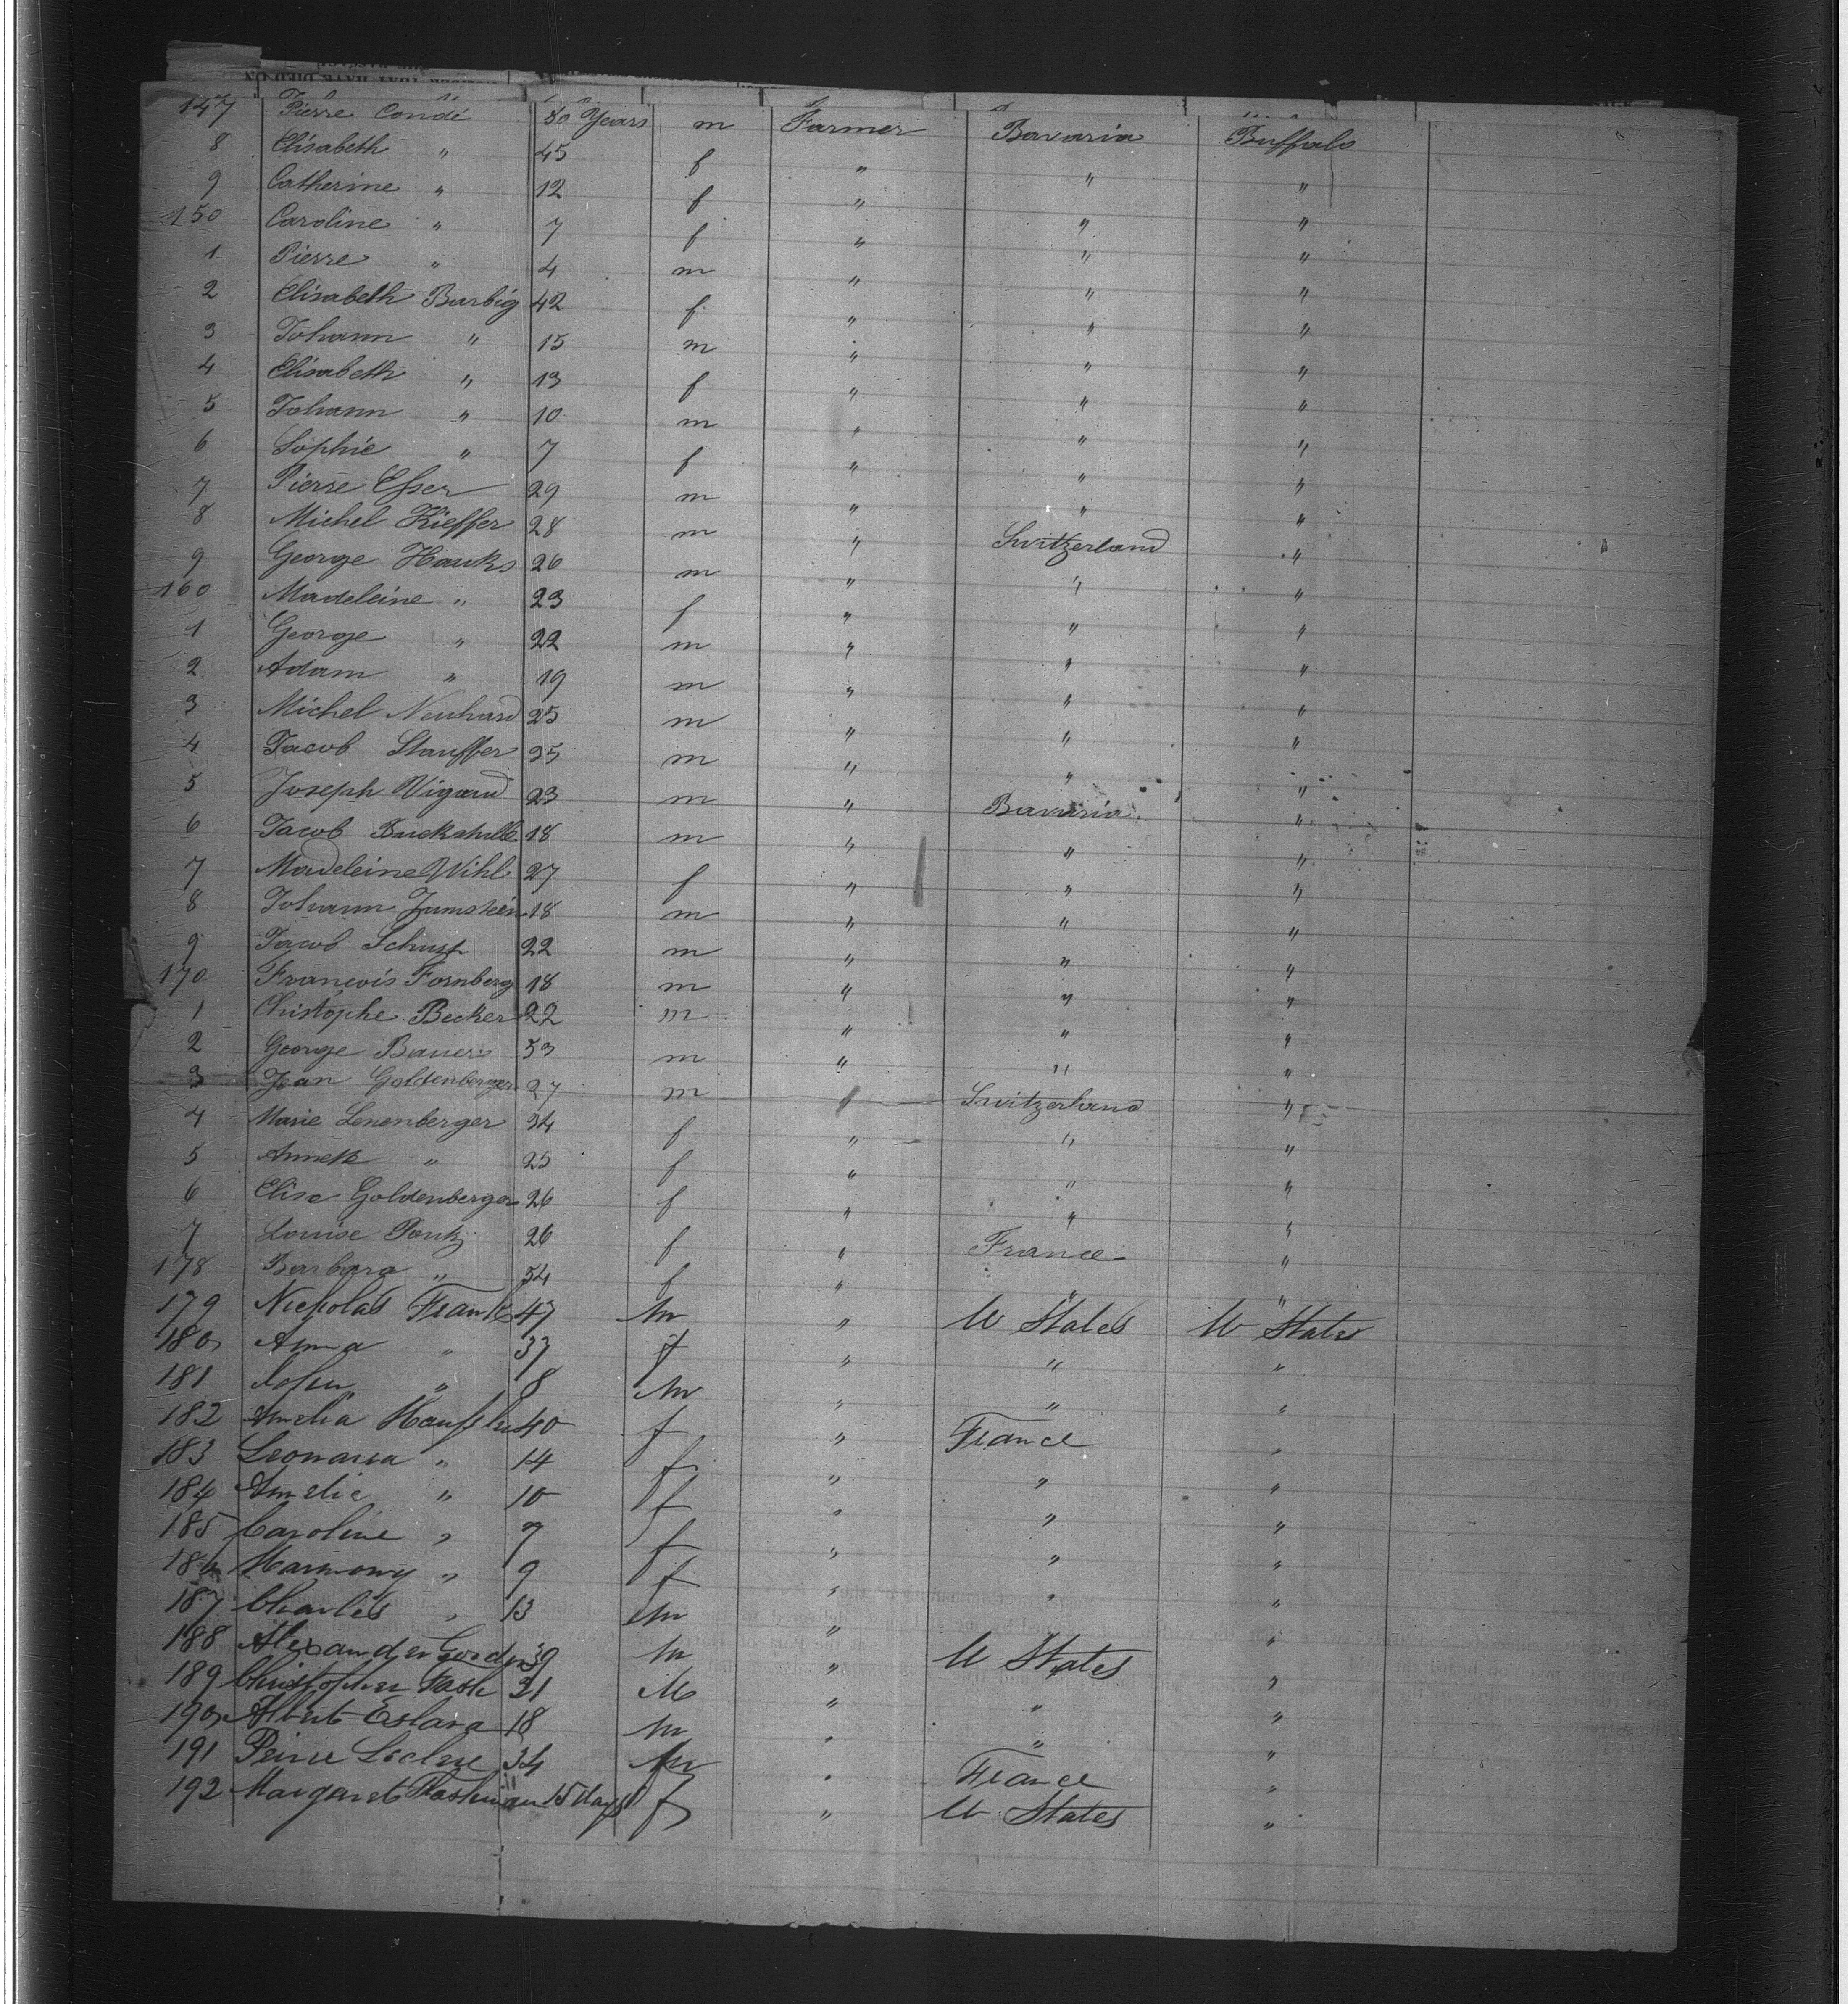 147 Pierre Condé 50 Years m Farmer Bavaria Buffalo
8 Elisabeth " 45 f " " "
9 Catherine " 12 f " " "
150 Caroline " 7 f " " "
1 Pierre " 4 m " " "
2 Elisabeth Barbig 42 f " " "
3 Johann " 15 m " " "
4 Elisabeth " 13 f " " "
5 Johann " 10 m " " "
6 Sophie " 7 f " " "
7 Pierre Esser 29 m " " "
8 Michel Kieffer 28 m " Switzerland "
9 George Hauks 26 m " " "
160 Madeleine " 23 f " " "
1 George " 22 m " " "
2 Adam " 19 m " " "
3 Michel Neuhard 25 m " " "
4 Jacob Stauffer 35 m " " "
5 Joseph Wigand 23 m " Bavaria "
6 Jacob 18 m " " "
7 Madeleine Wihl 27 f " " "
8 Johann Zumstein 18 m " " "
9 Jacob 22 m " " "
170 François Fornberg 18 m " " "
1 Christophe Becker 22 m " " "
2 George Bauer 53 m " " "
3 Jean Goldenberger 27 m " Switzerland "
4 Marie Lenenberger 34 f " " "
5 Annette " 25 f " " "
6 Elise Goldenberger 26 f " " "
7 Louise 26 f " France "
178 Barbara " 54 f " " "
179 Nicholas Frank 47 m " U States U States
180 Anna " 37 f " " "
181 John " 8 m " " "
182 Amelia 40 f " France "
183 " 14 f " " "
184 Amelie " 10 f " " "
185 Caroline " 7 f " " "
186 Harmony " 9 f " " "
187 Charles " 13 m " " "
188 Alexander Gordon 39 m " U States "
189 Christopher Fash 21 M " " "
190 Albert Eslara 18 m " " "
191 Pierre Leclere 34 m " France "
192 Margaret 15 days f " U States "